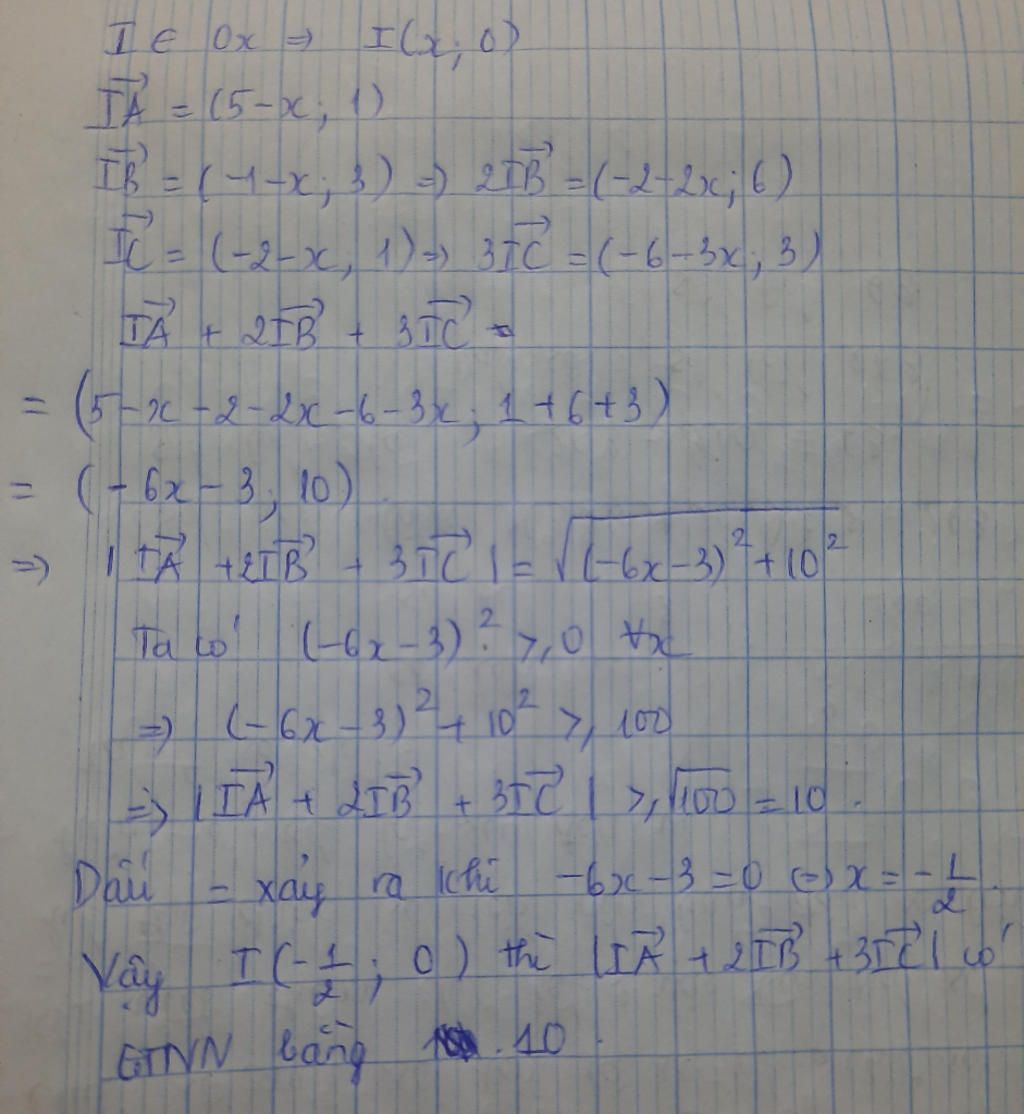 I ∈ Ox ⇒ I(x; 0)
→IA = (5-x; 1)
→IB = (-1-x; 3) ⇒ 2→IB = (-2-2x; 6)
→IC = (-2-x, 1) ⇒ 3→IC = (-6-3x; 3)
→IA + 2→IB + 3→IC =
= (5-x-2-2x-6-3x; 1+6+3)
= (-6x-3; 10)
⇒ |→IA + 2→IB + 3→IC| = √((-6x-3)² + 10²)
Ta có (-6x-3)² ≥ 0 ∀x
⇒ (-6x-3)² + 10² ≥ 100
⇒ |→IA + 2→IB + 3→IC| ≥ √100 = 10.
Dấu = xảy ra khi -6x-3=0 ⇔ x = -1/2.
Vậy I(-1/2; 0) thì |→IA + 2→IB + 3→IC| có
GTNN bằng 10.